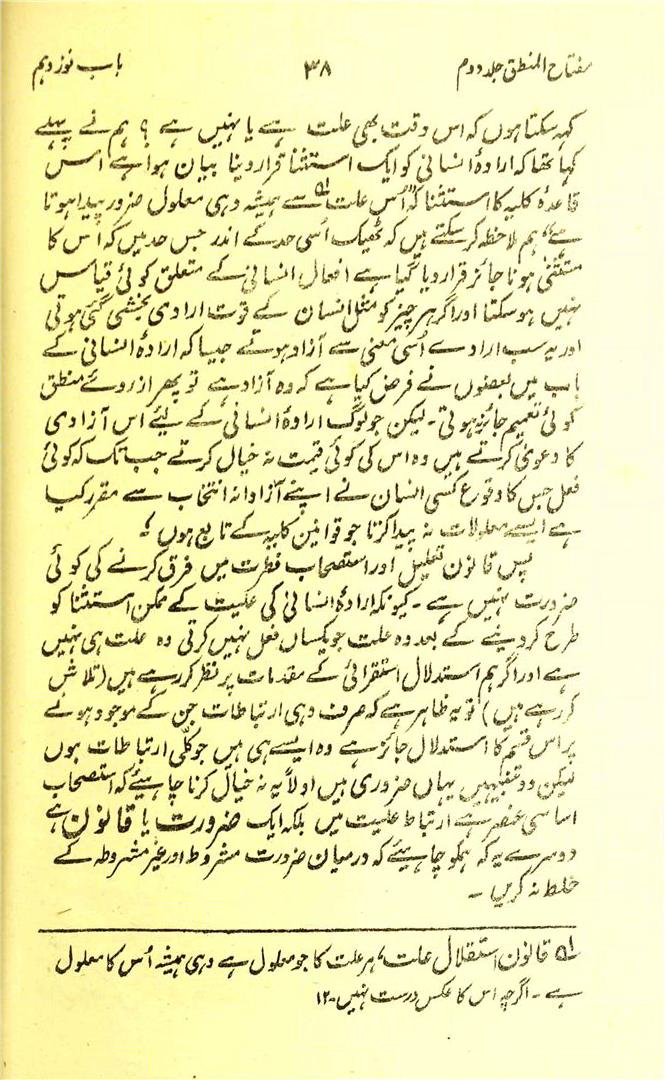 مفتاح المنطق جلد دوم ۳۸ باب نوزدہم
کہہ سکتا ہوں کہ اس وقت بھی علت ہے یا نہیں ہے ؟ ہم نے پہلے
کہا تھا کہ ارادۂ انسانی کو ایک استثنا قرار دینا بیان ہوا ہے اس
قاعدۂ کلیہ کا استثنا کہ ”اُس علت ؎۱ سے ہمیشہ وہی معلول ضرور پیدا ہوتا
ہے“ ہم لاحظہ کر سکتے ہیں کہ ٹھیک اُسی حد کے اندر جس حد میں کہ اُس کا
مستثنیٰ ہونا جائز قرار دیا گیا ہے افعال انسانی کے متعلق کوئی قیاس
نہیں ہو سکتا اور اگر ہر چیز کو مثل انسان کے قوت ارادی بخشی گئی ہوتی
اور یہ سب ارادے اُسی معنی سے آزاد ہوتے جیسا کہ ارادۂ انسانی کے
باب میں بعضوں نے فرض کیا ہے کہ وہ آزاد ہے تو پھر از روئے منطق
کوئی تعمیم جائز نہ ہوتی ۔ لیکن جو لوگ ارادۂ انسانی کے لیئے اس آزادی
کا دعویٰ کرتے ہیں وہ اس کی کوئی قیمت نہ خیال کرتے جب تک کہ کوئی
فعل جس کا وقوع کسی انسان نے اپنے آزادانہ انتخاب سے مقرر کیا
ہے ایسے معلولات نہ پیدا کرتا جو قوانین کلیہ کے تابع ہوں ؟
پس قانون تعلیل اور استصحاب فطرت میں فرق کرنے کی کوئی
ضرورت نہیں ہے ۔ کیونکہ ارادۂ انسانی کی علیت کے ممکن استثنا کو
طرح کر دینے کے بعد وہ علت جو یکساں فعل نہیں کرتی وہ علت ہی نہیں
ہے اور اگر ہم استدلال استقرائی کے مقدمات پر نظر کر رہے ہیں (تلاش
کر رہے ہیں ) تو یہ ظاہر ہے کہ صرف وہی ارتباطات جن کے موجود ہونے
پر اس قسم کا استدلال جائز ہے وہ ایسے ہی ہیں جو کلّی ارتباطات ہوں
لیکن دو تنبیہیں یہاں ضروری ہیں اولاً یہ نہ خیال کرنا چاہیئے کہ استصحاب
اساسی عنصر ہے ارتباط علیت میں بلکہ ایک ضرورت یا قانون ہے
دوسرے یہ کہ ہمکو چاہیئے کہ درمیان ضرورت مشروط اور غیر مشروطہ کے
خلط نہ کریں ۔
؎۱ قانون استقلال علت ، ہر علت کا جو معلول ہے وہی ہمیشہ اُس کا معلول
ہے ۔ اگرچہ اس کا عکس درست نہیں ۔ ۱۲